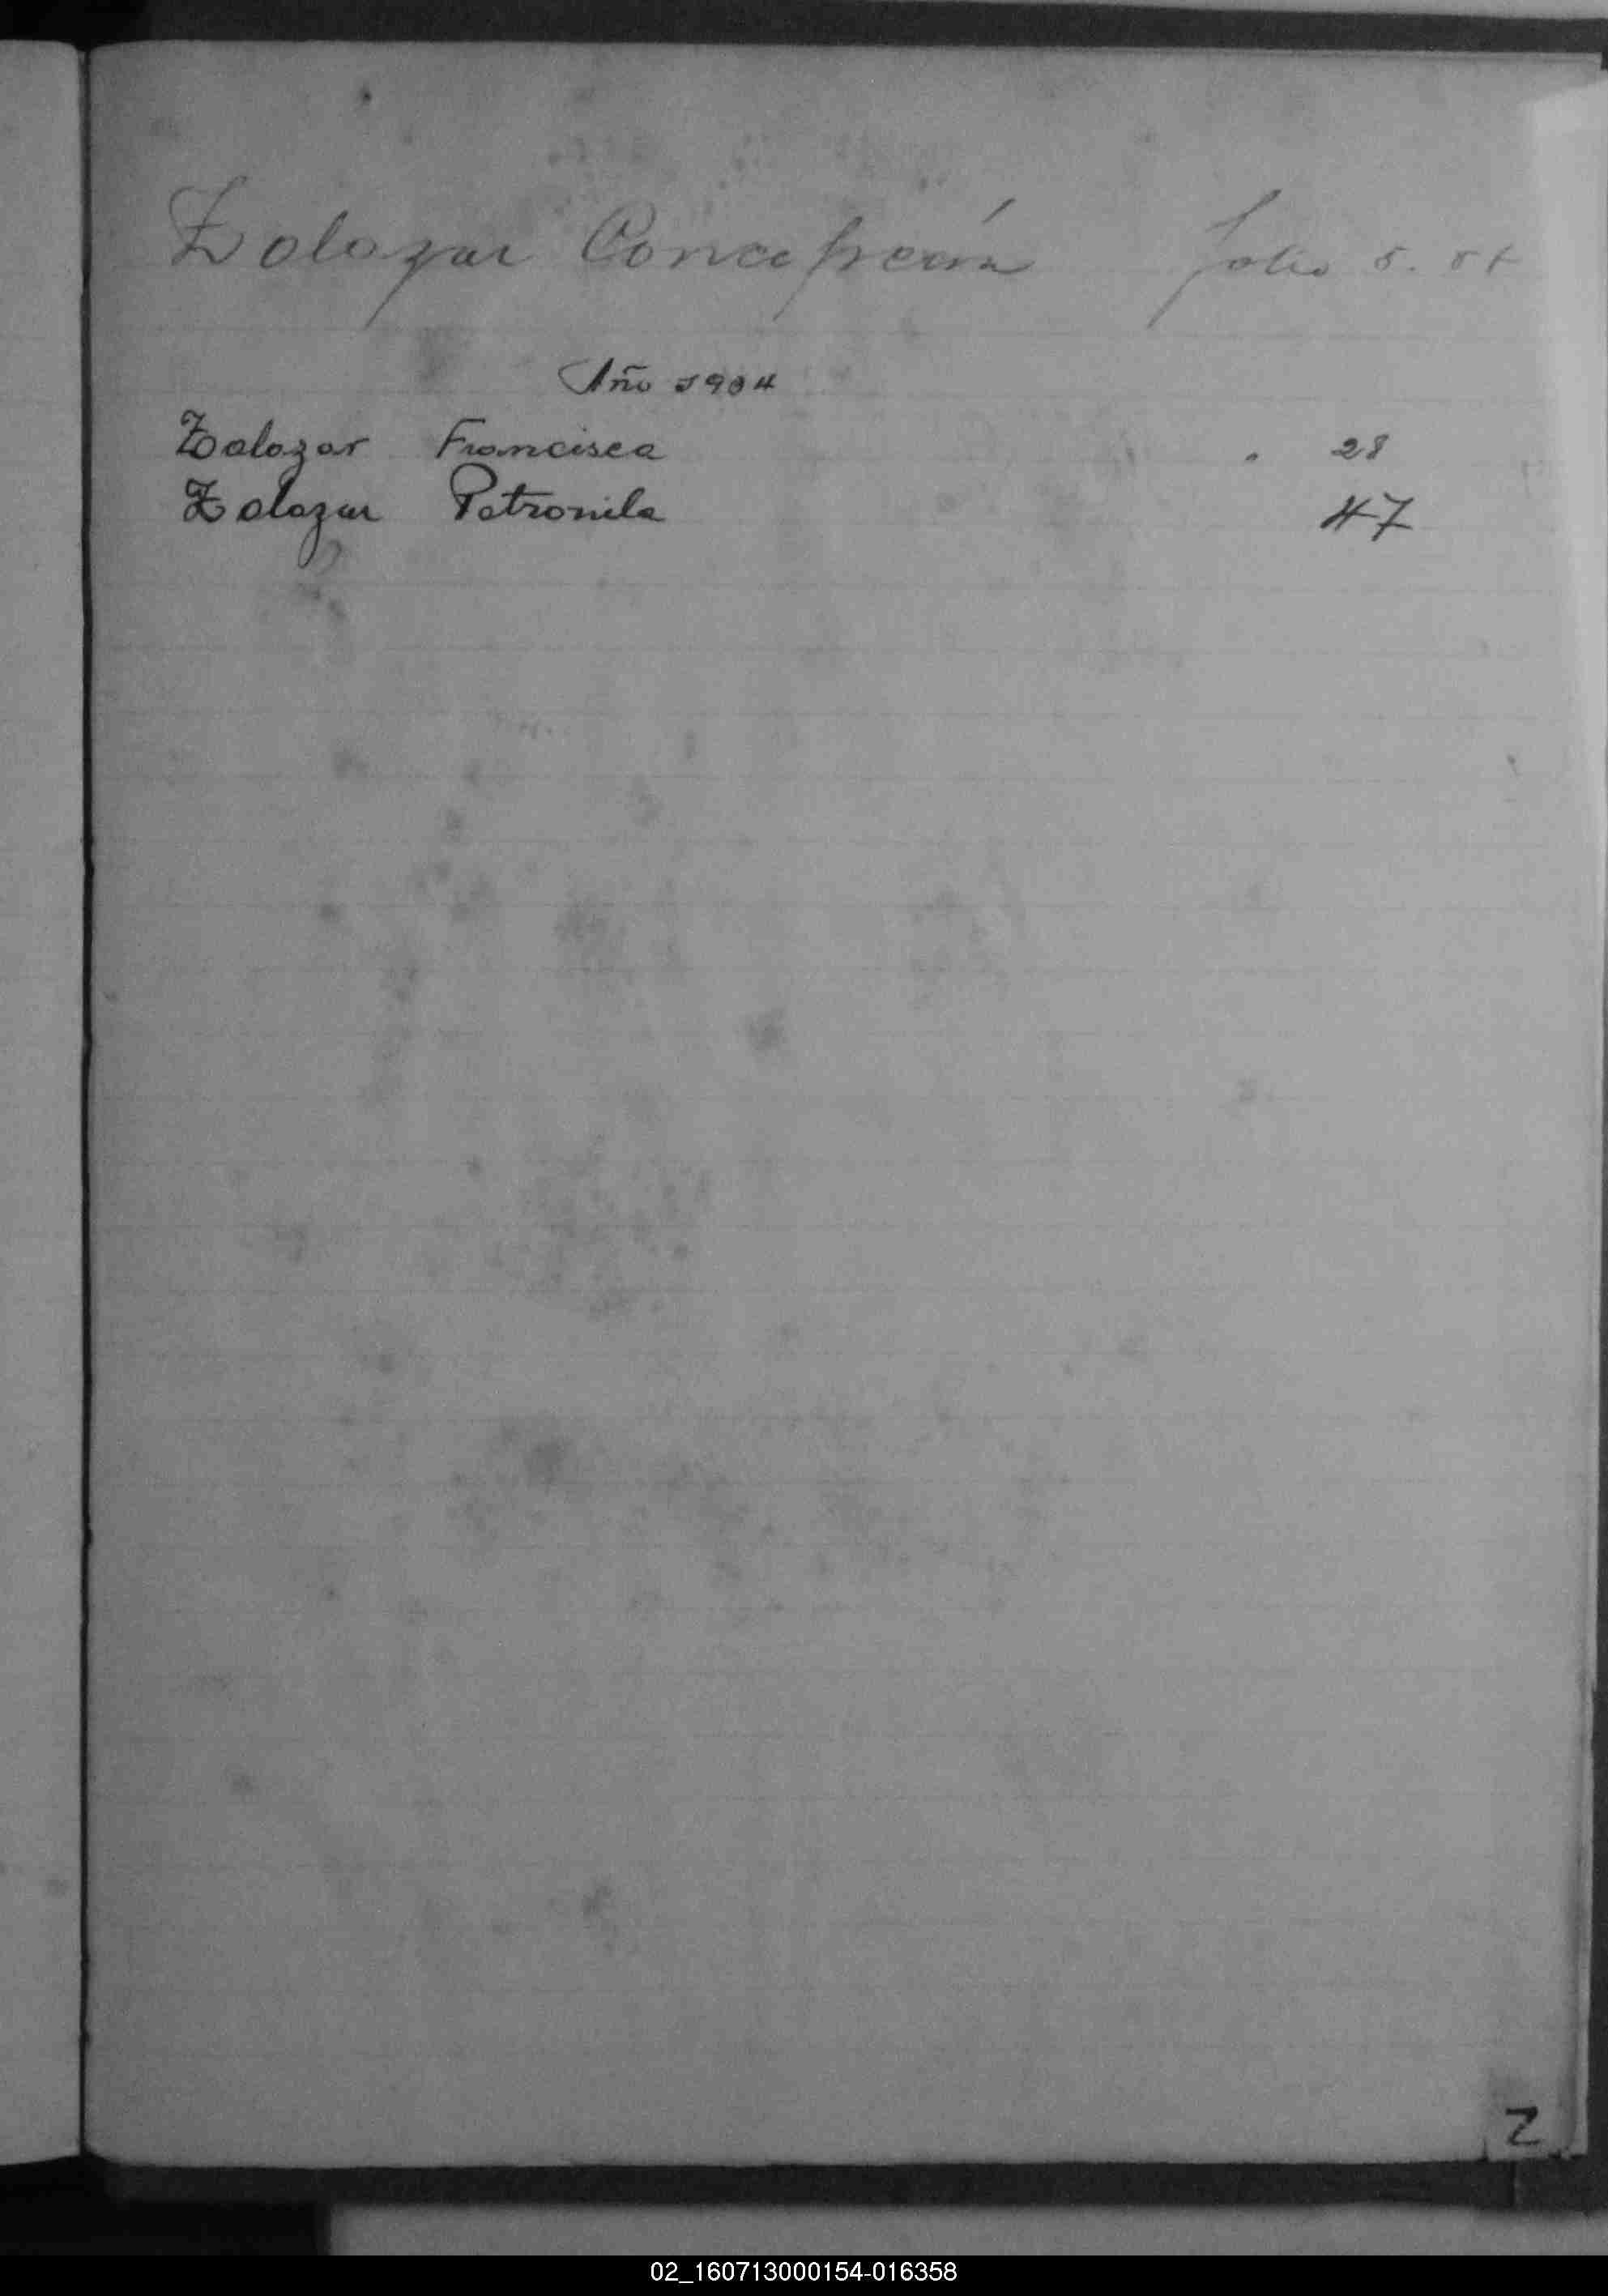 Zalazar Concepción folio 5.
Año 1904
Zalazar Francisca 28
Zalazar Petronila 47
Z
02_160713000154-016358